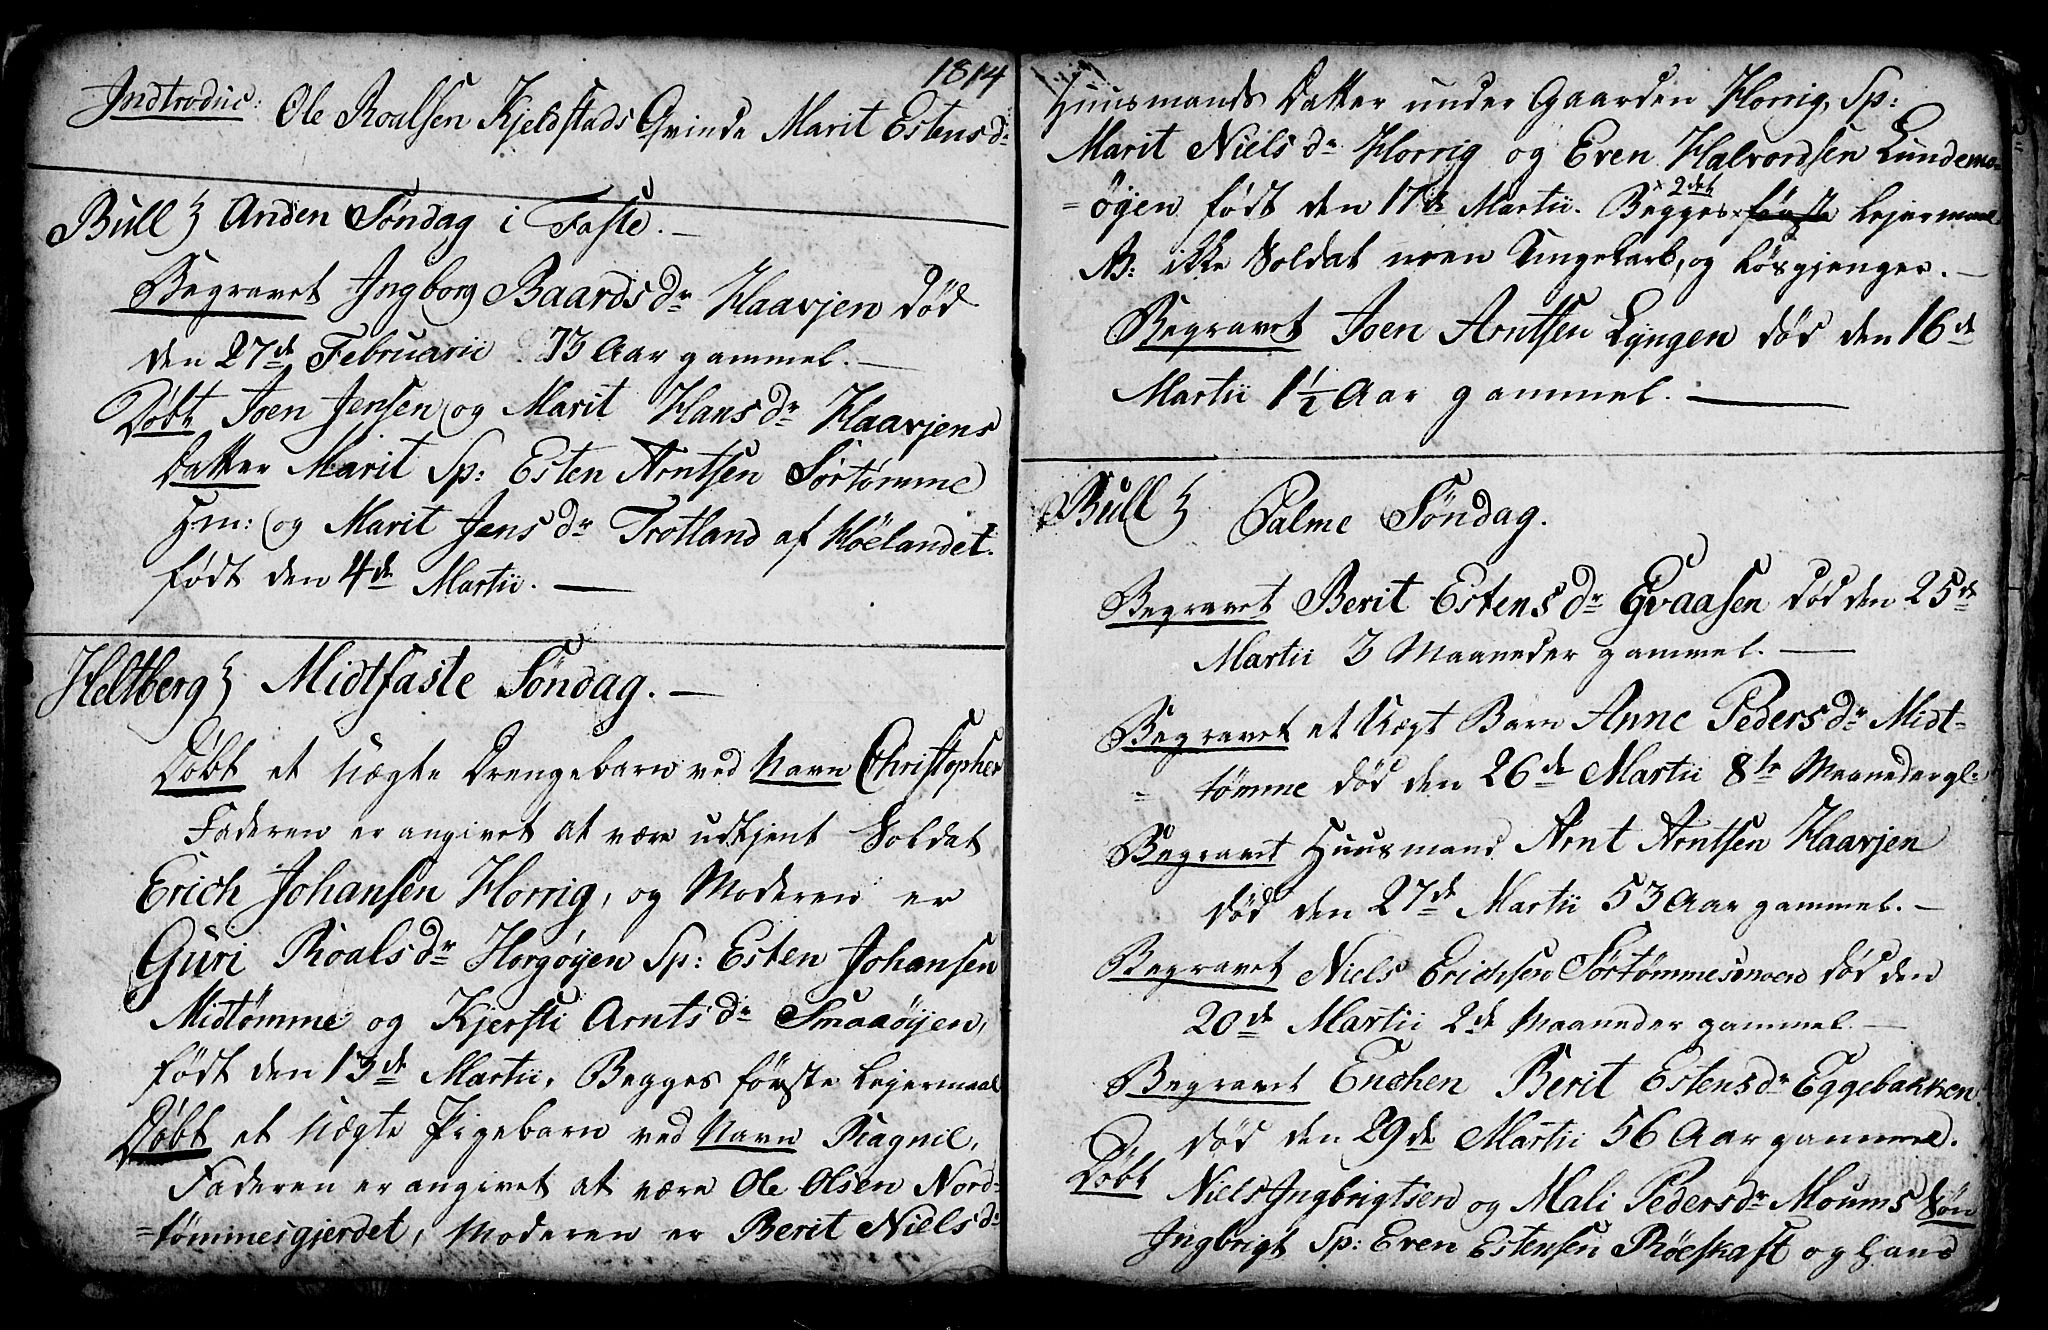 1814
Indtroduc: Ole Roalsen Kjeldstads Qvinde Marit Estensdr
Bull Anden Søndag i Faste. —
Begravet Ingborg Baardsdr Haavjen død
den 27de Februarii 73 Aar gammel. —
Døbt Joen Jensen og Marit Hansdr Haavjens
Datter Marit Sp: Esten Arntsen Sørtømme
Hm: og Marit Jensdr Trotland af Høelandet.
født den 4de Martii. —
Heltberg Midtfaste Søndag. —
Døbt et Uægte Drengebarn ved Navn Christopher
Faderen er angivet at være udtjent Soldat
Erich Johansen Horrig, og Moderen er
Guri Roalsdr Horgøyen Sp: Esten Johansen
Midtømme og Kjersti Arntsdr Smaaøyen,
født den 13de Martii, Begges første Lejermaal
Døbt et Uægte Pigebarn ved Navn Ragnil,
Faderen er angivet at være Ole Olsen Nord-
=tømmesgjerdet, Moderen er Berit Nielsdr
Huusmands Datter under Gaarden Horrig, Sp:
Marit Nielsdr Horrig og Even Halvordsen Lundemo-
=øyen født den 17de Martii. Begges 2det første Lejermaal
NB: ikke Soldat men Ungekarl, og Løsgjenger. —
Begravet Joen Arntsen Lyngen død den 16de
Martii 1½ Aar gammel. —
Bull Palme Søndag.
Begravet Berit Estensdr Qvaasen død den 25de
Martii 3 Maaneder gammel. —
Begravet et Uægt Barn Anne Pedersdr Midt-
=tømme død den 26de Martii 8te Maaneder gl:
Begravet Huusmand Arnt Arntsen Haavjen
død den 27de Martii 53 Aar gammel. —
Begravet Niels Erichsen død den
20de Martii 2de Maaneder gammel —
Begravet Enchen Berit Estensdr Eggebakken
død den 29de Martii 56 Aar gammel.
Døbt Niels Ingbrigtsen og Mali Pedersdr Moums Søn
Ingbrigt Sp: Even Estensen Røeskaft og Hans